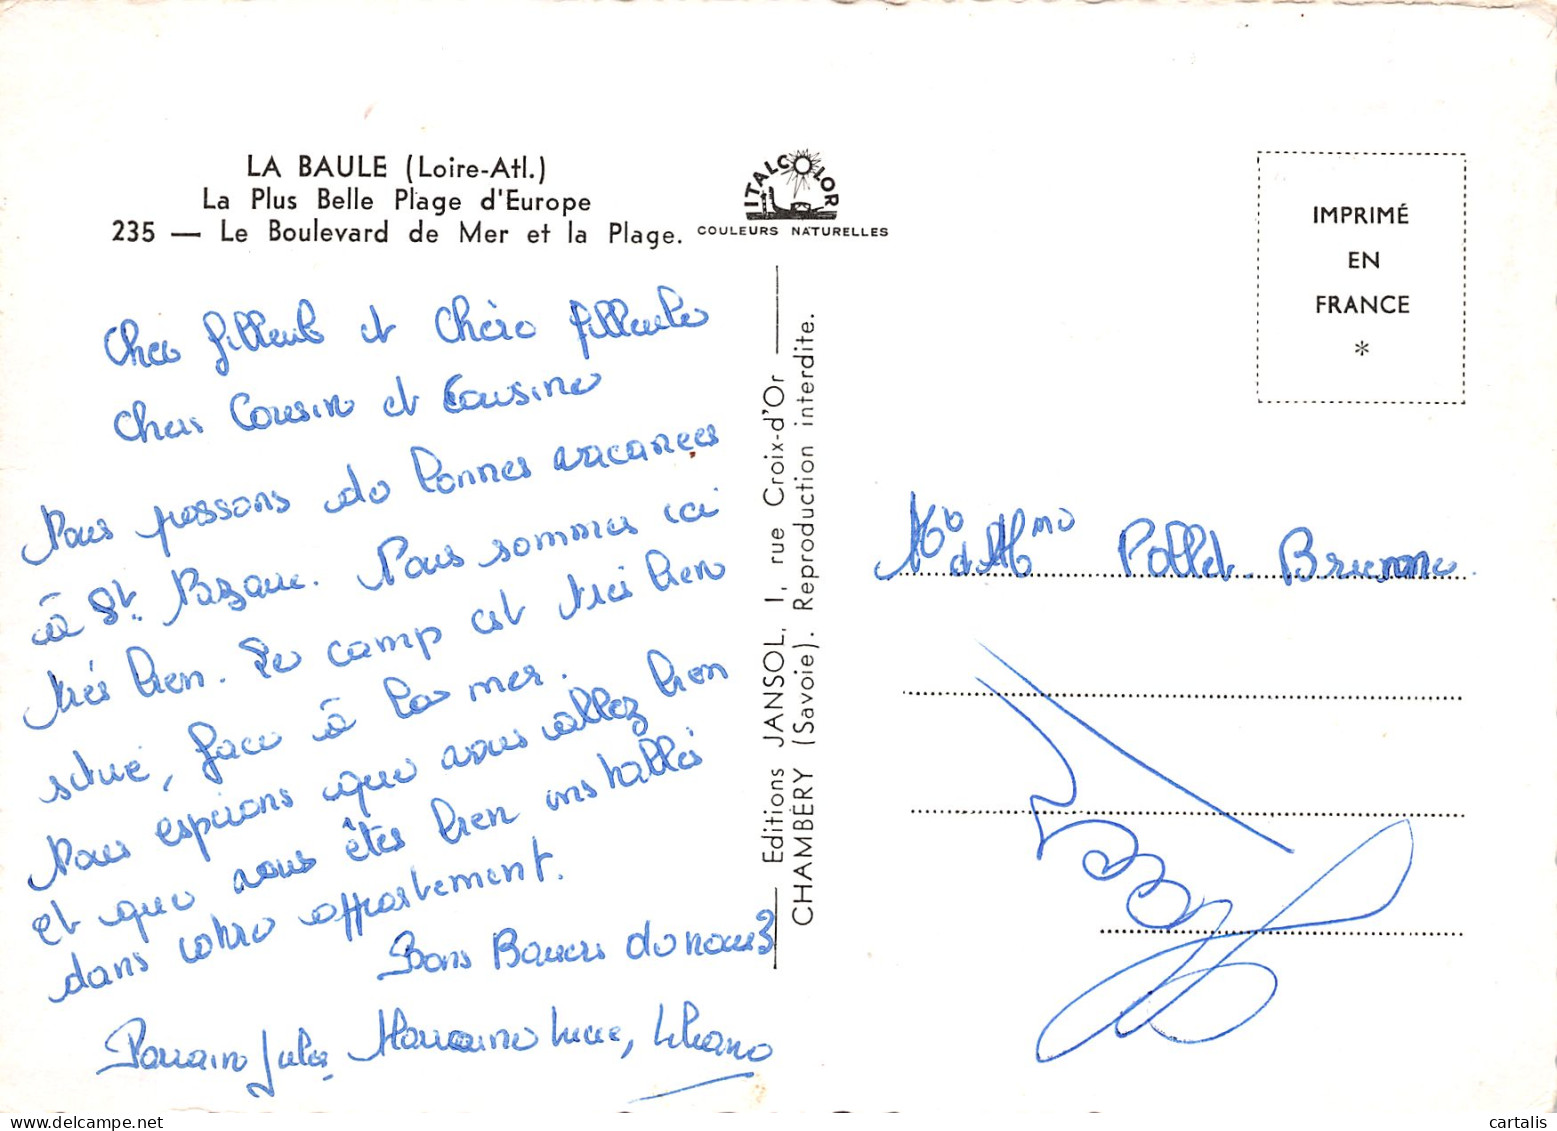 LA BAULE (Loire-Atl.)
La Plus Belle Plage d'Europe
235 — Le Boulevard de Mer et la Plage.
ITALCOLOR
COULEURS NATURELLES
IMPRIMÉ
EN
FRANCE
*
Cher filleul et Chère filleule
Cher Cousin et Cousine
Nous passons de bonnes vacances
à St. Nazaire. Nous sommes ici
très bien. Le camp est très bien
situé, face à la mer.
Nous espérons que vous allez bien
et que vous êtes bien installés
dans votre appartement.
Bons Baisers de nous 3
Parrain Jules Marraine Lucie, Liliane
Editions JANSOL, 1, rue Croix-d'Or
CHAMBÉRY (Savoie). Reproduction interdite.
Mr et Mme Pollet Bruno